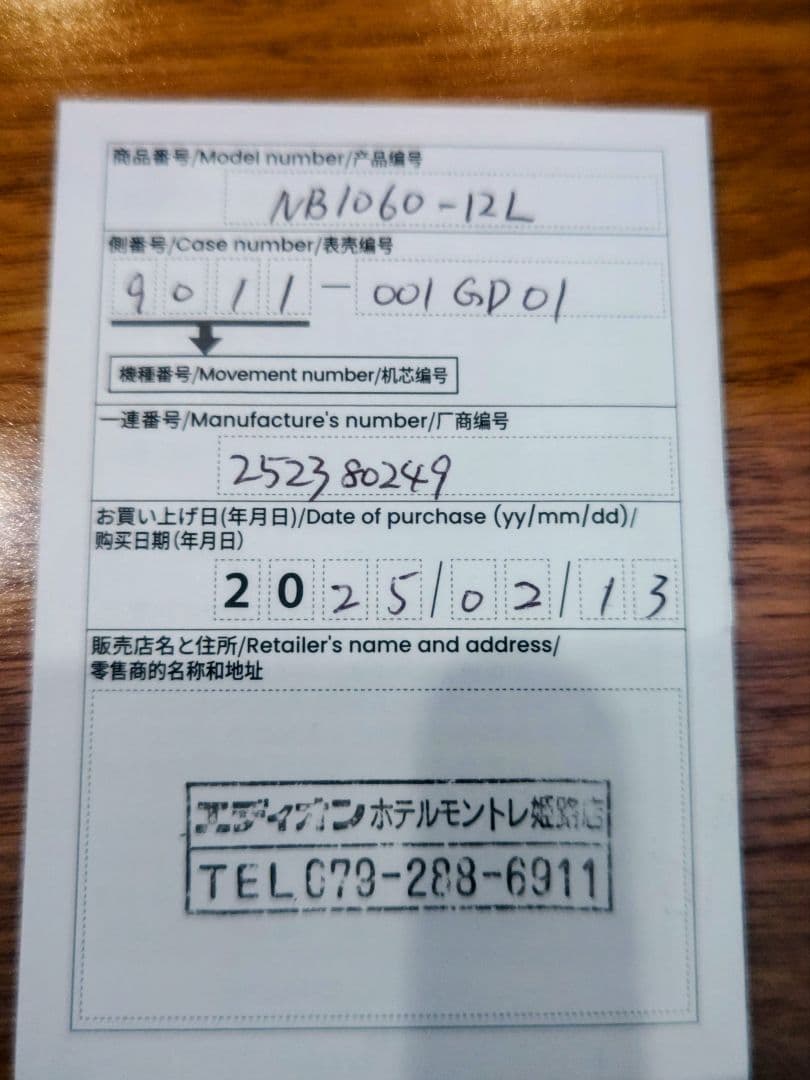 商品番号/Model number/产品编号
NB1060-12L
側番号/Case number/表壳编号
9011-001GD01
機種番号/Movement number/机芯编号
一連番号/Manufacture's number/厂商编号
252380249
お買い上げ日(年月日)/Date of purchase (yy/mm/dd)/
购买日期(年月日)
2025/02/13
販売店名と住所/Retailer's name and address/
零售商的名称和地址
エディオンホテルモントレ姫路店
TEL079-288-6911